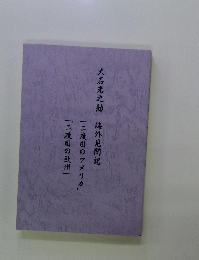 大石光之助 海外見聞記
「二度目のアメリカ」
「二度目の欧州」